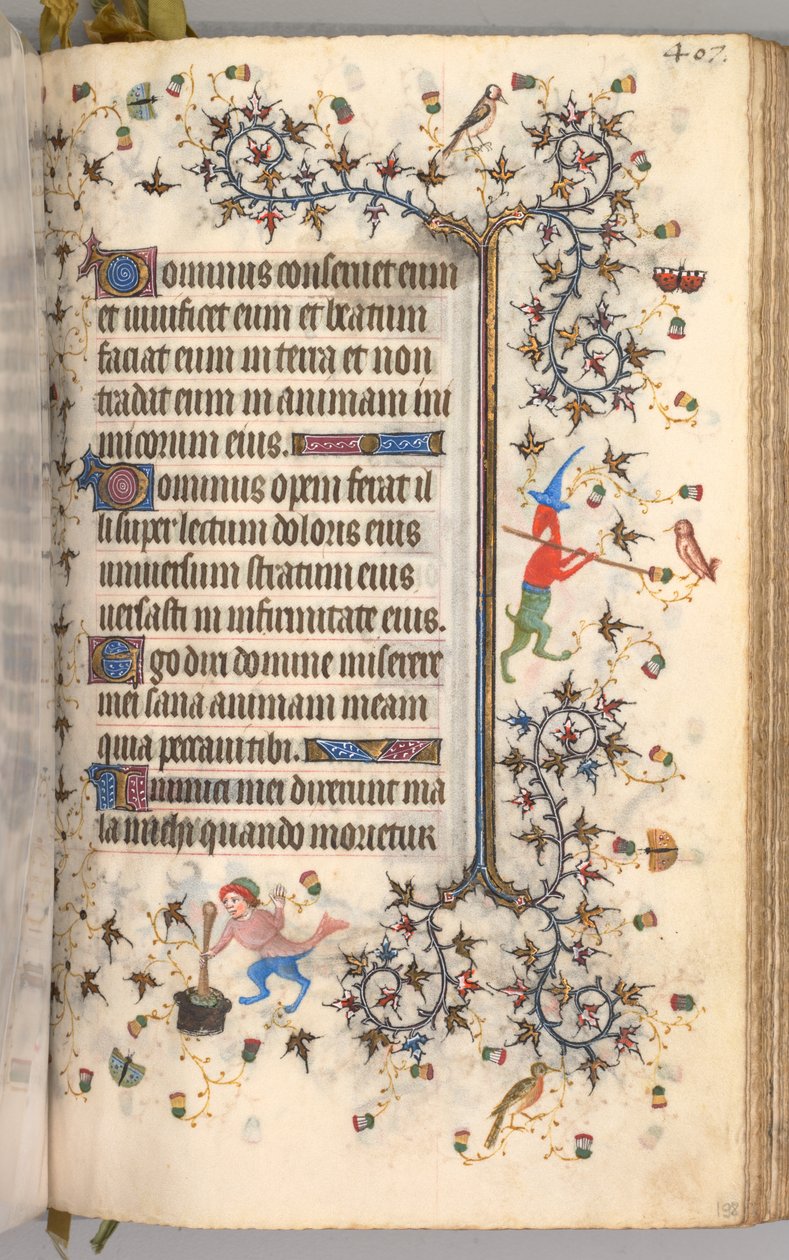 407.
Dominus conservet eum
et vivificet eum et beatum
faciat eum in terra et non
tradat eum in animam ini
micorum eius.
Dominus opem ferat il
li super lectum doloris eius
universum stratum eius
versasti in infirmitate eius.
Ego dixi domine miserere
mei sana animam meam
quia peccavi tibi.
Inimici mei dixerunt ma
la michi quando morietur
198